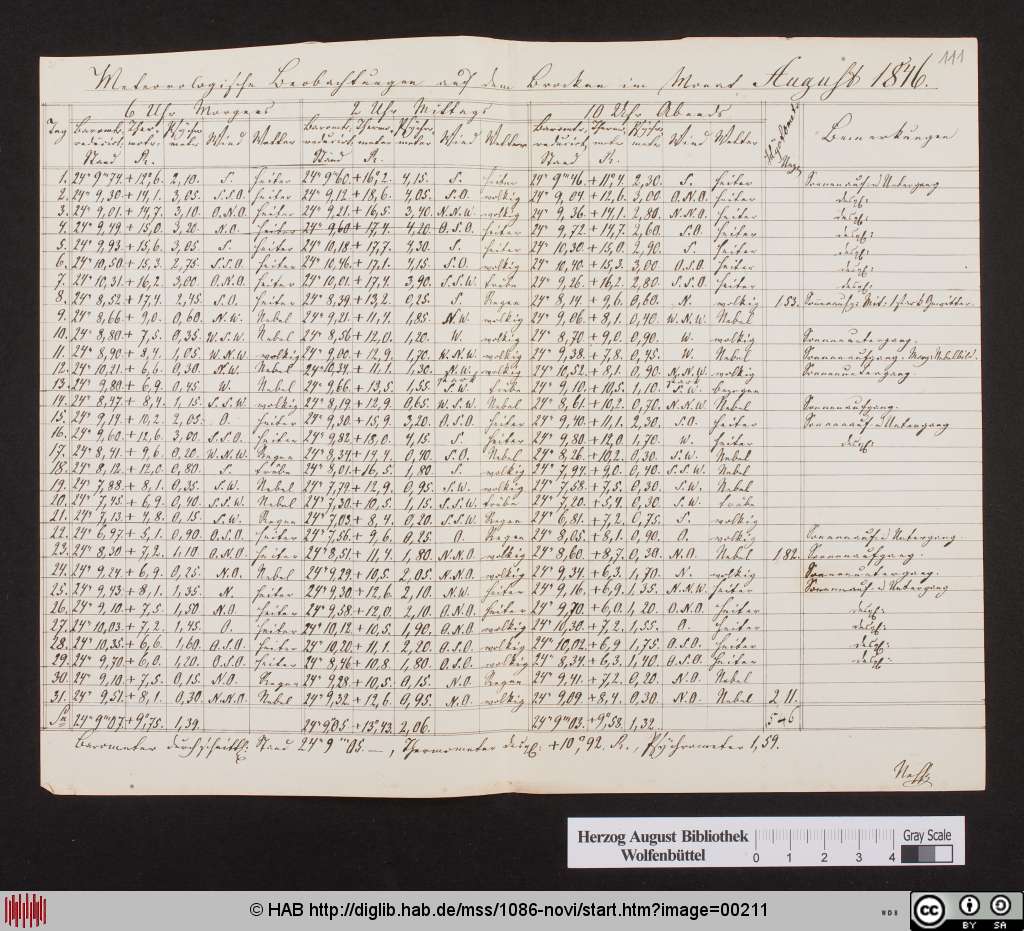 111
Meteorologische Beobachtungen auf dem Brocken im Monat August 1846.
6 Uhr Morgens 2 Uhr Mittags 10 Uhr Abends
Tag Baromtr. Ther- Psychro- Wind Wetter Baromtr. Thermo- Psychro- Wind Wetter Baromtr. Thermo- Psychro- Wind Wetter Bemerkungen
reducirt. motr. metr reducirt. metr. metr reducirt. metr. metr
Stand R. Stand R. Stand R.
1. 24" 9"'74. + 12°,6. 2,10. S. heiter 24" 9"'60. + 16°,2. 4,15. S. heiter 24" 9"'46. + 11°,4. 2,30. S. heiter Sonnenauf- u Untergang
2. 24" 9,30 + 14,1. 3,05. S.S.O. heiter 24" 9,12 + 18,6. 4,05. S.O. wolkig 24" 9,04 + 12,6. 3,00 O.N.O. heiter desgl:
3. 24" 9,01. + 14,7. 3,10. O.N.O. heiter 24" 9,21. + 16,5. 3,40. N.N.W. wolkig 24" 9,36 + 14,1. 2,80. N.N.O. heiter desgl:
4. 24" 9,49 + 15,0 3,20. N.O. heiter 24" 9,60 + 17,4. 4,20 O.S.O. heiter 24" 9,72 + 14,7. 2,60. S.O. heiter desgl:
5. 24" 9,93 + 15,6. 3,05 S. heiter 24" 10,18 + 17,7. 4,30. S. heiter 24" 10,30 + 15,0. 2,90. S. heiter desgl:
6. 24" 10,50 + 15,3. 2,75. S.S.O. heiter 24" 10,46. + 17,1. 4,15 S.O. wolkig 24" 10,40. + 15,3. 3,00 O.S.O. heiter desgl:
7. 24" 10,31. + 16,2. 3,00. O.N.O. heiter 24" 10,01 + 17,4. 3,90. S.S.W. trübe 24" 9,26. + 16,2. 2,80 S.S.O. heiter desgl:
8. 24" 8,52 + 17,4. 2,45. S.O. heiter 24" 8,39 + 13,2. 0,25. S. Regen 24" 8,14 + 9,6. 0,60. N. wolkig 153.
9. 24" 8,66 + 9,0. 0,60. N.W. Nebel 24" 9,21 + 11,4. 1,85. N.W. wolkig 24" 9,06 + 8,1. 0,40. W.N.W. Nebel
10. 24" 8,80 + 7,5. 0,35. W.S.W. Nebel 24" 8,56 + 12,0. 1,20. W. wolkig 24" 8,70 + 9,0. 0,90. W. wolkig Sonnenuntergang.
11. 24" 8,90 + 8,4. 1,05. W.N.W. wolkig 24" 9,00 + 12,9. 1,70. W.N.W. wolkig 24" 9,38 + 7,8. 0,45. W. Nebel Sonnenaufgang. Morg: Nebelbild.
12. 24" 10,21 + 6,6 0,30. N.W. Nebel 24" 10,34 + 11,1. 1,30. N.W. wolkig 24" 10,52 + 8,1. 0,90. N.N.W. wolkig Sonnenuntergang.
13. 24" 9,80 + 6,9 0,45 W. Nebel 24" 9,66 + 13,5. 1,55. S.W. trübe 24" 9,10 + 10,5. 1,10. S.W. bezogen
14. 24" 8,37 + 8,4. 1,15. S.S.W. wolkig 24" 8,19 + 12,9. 0,65 W.S.W. Nebel 24" 8,61 + 10,2. 0,70. N.N.W. Nebel Sonnenaufgang.
15. 24" 9,19 + 10,2. 2,05. O. heiter 24" 9,30 + 15,9. 3,20. O.S.O. heiter 24" 9,40 + 11,1. 2,30. S.O. heiter Sonnenauf- u Untergang
16. 24" 9,60 + 12,6. 3,00. S.S.O. heiter 24" 9,82 + 18,0. 4,15 S. heiter 24" 9,80 + 12,0 1,70. W. heiter desgl:
17. 24" 8,41 + 9,6. 0,20. W.N.W. Regen 24" 8,34 + 14,4 0,40. S.O. Nebel 24" 8,26 + 10,2. 0,30. S.W. Nebel
18. 24" 8,12 + 12,0. 0,80. S. trübe 24" 8,01 + 16,5. 1,80 S. wolkig 24" 7,94. + 9,0. 0,40. S.S.W. Nebel
19. 24" 7,88 + 8,1. 0,35. S.W. Nebel 24" 7,79 + 12,9. 0,95. S.W. wolkig 24" 7,58 + 7,5. 0,30. S.W. Nebel
20. 24" 7,45 + 6,9. 0,40. S.S.W. Nebel 24" 7,30 + 10,5. 1,15. S.S.W. trübe 24" 7,20. + 5,4. 0,30. S.W. trübe
21. 24" 7,13 + 4,8. 0,15. S.W. Regen 24" 7,03 + 8,4. 0,20. S.S.W. Regen 24" 6,81. + 7,2. 0,75. S. wolkig
22. 24" 6,97 + 5,1. 0,90. O.S.O. heiter 24" 7,56 + 9,6. 0,25 O. Regen 24" 8,05 + 8,1. 0,90. O. wolkig Sonnenauf- u Untergang.
23. 24" 8,30 + 7,2. 1,10 O.N.O. heiter 24" 8,51 + 11,4. 1,80. N.N.O. wolkig 24" 8,60 + 8,7. 0,30. N.O. Nebel 182. Sonnenaufgang.
24. 24" 9,24 + 6,9. 0,25. N.O. Nebel 24" 9,29 + 10,5. 2,05. N.N.O. wolkig 24" 9,34 + 6,3. 1,70. N. wolkig Sonnenuntergang.
25. 24" 9,43 + 8,1. 1,35. N. heiter 24" 9,30 + 12,6. 2,10. N.W. heiter 24" 9,16. + 6,9. 1,35. N.N.W. heiter Sonnenauf- u Untergang
26. 24" 9,10 + 7,5. 1,50 N.O heiter 24" 9,58 + 12,0. 2,10. O.N.O. heiter 24" 9,70 + 6,0. 1,20. O.N.O. heiter desgl:
27. 24" 10,03 + 7,2. 1,45. O. heiter 24" 10,12 + 10,5. 1,90. O.N.O wolkig 24" 10,30 + 7,2. 1,55. O. heiter desgl:
28. 24" 10,35 + 6,6. 1,60. O.S.O. heiter 24" 10,20 + 11,1. 2,20. O.S.O. wolkig 24" 10,02 + 6,9 1,75. O.S.O. heiter desgl:
29. 24" 9,70 + 6,0. 1,20. O.S.O. heiter 24" 8,46 + 10,8. 1,80. O.S.O. wolkig 24" 8,34 + 6,3. 1,40. O.S.O. heiter desgl:
30. 24" 9,10 + 7,5. 0,15. N.O. Regen 24" 9,28 + 10,5. 0,15. N.O. Regen 24" 9,41 + 7,2. 0,20. N.O. Nebel
31. 24" 9,51 + 8,1. 0,30. N.N.O. Nebel 24" 9,32 + 12,6. 0,95. N.O. wolkig 24" 9,09 + 8,4. 0,30. N.O. Nebel 211.
24" 9"'07. + 9°,75. 1,39. 24" 9,05 + 13,43. 2,06. 24" 9"'03. + 9°,58. 1,32. 546
Barometer durchschnittl. Stand 24" 9"'05. —, Thermometer desgl: + 10°,92. R., Psychrometer 1,59.
Herzog August Bibliothek
Wolfenbüttel
0 1 2 3 4
Gray Scale
© HAB http://diglib.hab.de/mss/1086-novi/start.htm?image=00211
WDB
cc BY SA